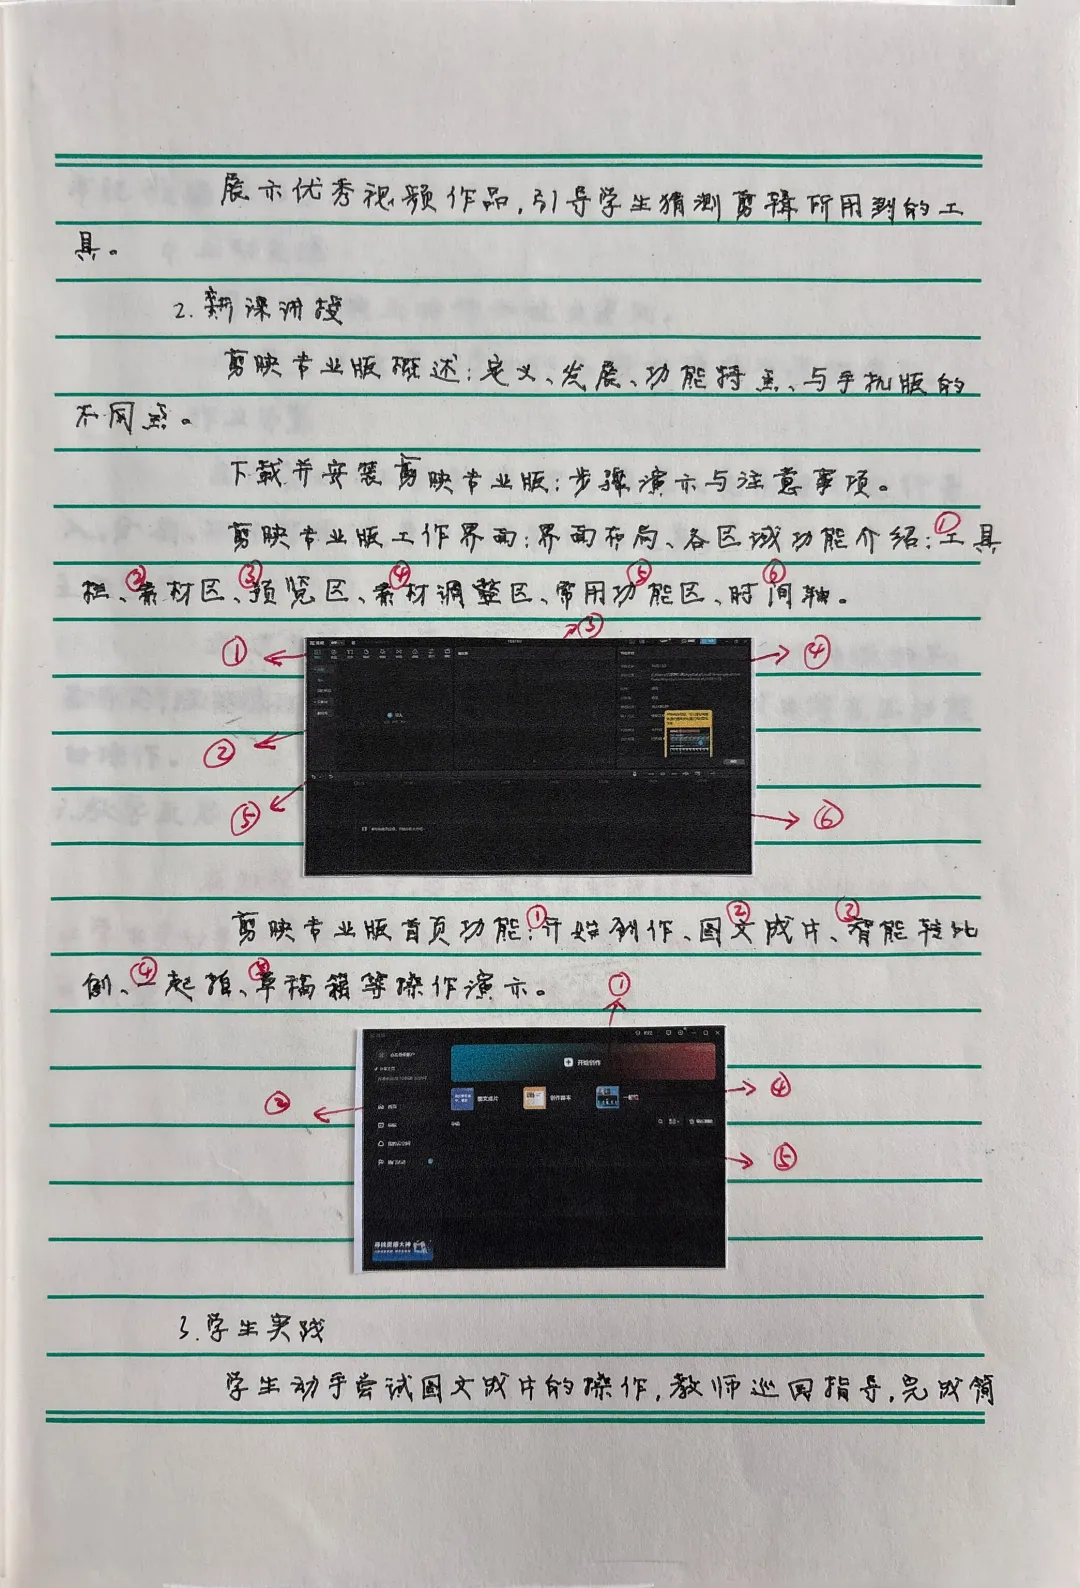 展示优秀视频作品,引导学生猜测剪辑所用到的工
具。
2.新课讲授
剪映专业版概述:定义、发展、功能特点、与手机版的
不同点。
下载并安装剪映专业版:步骤演示与注意事项。
剪映专业版工作界面:界面布局、各区域功能介绍:①工具
栏、②素材区、③预览区、④素材调整区、⑤常用功能区、⑥时间轴。
①
③
④
②
⑤
⑥
剪映专业版首页功能:①开始创作、②图文成片、③智能转比
例、④一起拍、⑤草稿箱等操作演示。
①
开始创作
图文成片
创作脚本
一起拍
④
②
⑤
寻找剪播大神
3.学生实践
学生动手尝试图文成片的操作,教师巡回指导,完成简